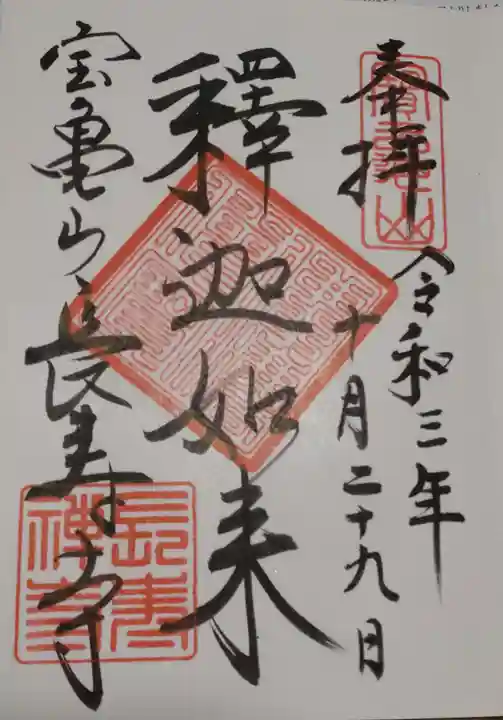 奉拝
令和三年
十月二十九日
釋迦如来
宝亀山長寿寺
寶龜山
長壽禅寺